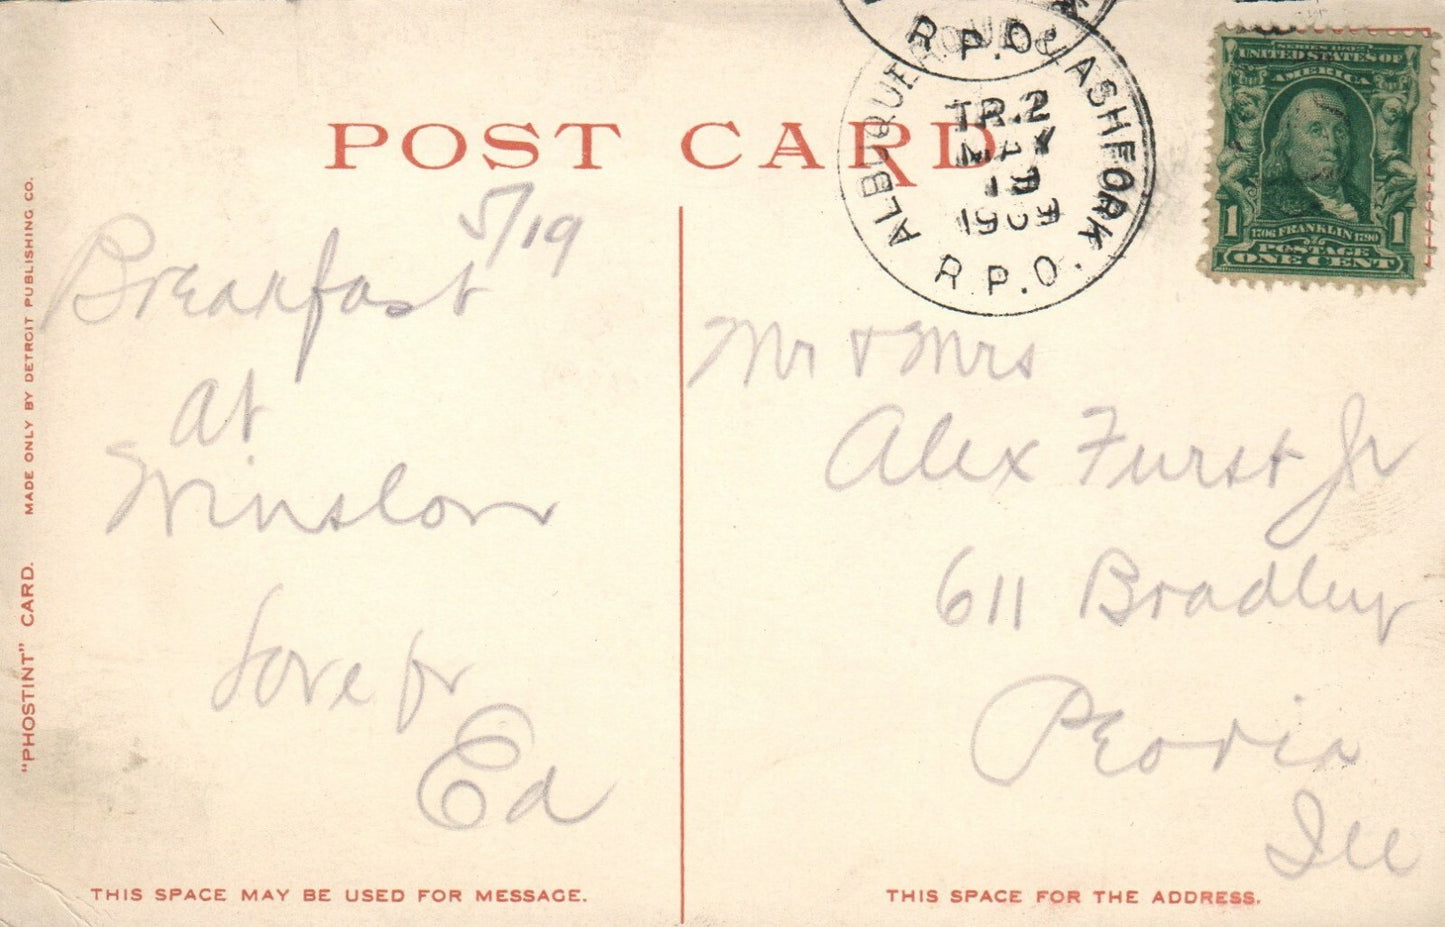 R.P.O.
ALBUQUERQUE & ASHFORK
TR.2
MAY
19
1909
R.P.O.
SERIES 1902
UNITED STATES OF
AMERICA
1 1
1706 FRANKLIN 1790
POSTAGE
ONE CENT
POST CARD
5/19
Breakfast
at
Winslow
Love fr
Ed
Mr & Mrs
Alex Furst Jr
611 Bradley
Peoria
Ill
"PHOSTINT" CARD. MADE ONLY BY DETROIT PUBLISHING CO.
THIS SPACE MAY BE USED FOR MESSAGE.
THIS SPACE FOR THE ADDRESS.